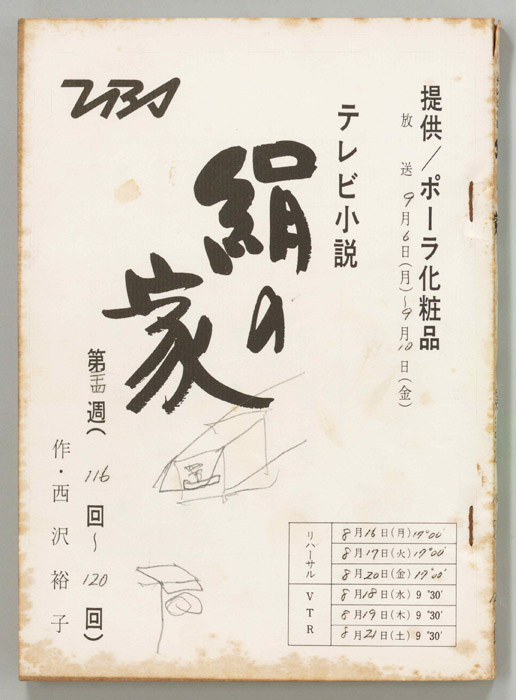 提供／ポーラ化粧品
放送 9月6日(月)～9月10日(金)
テレビ小説
絹の
家
第二十四週(116回～120回)
作・西沢裕子
TBS
リハーサル
8月16日(月)17°00'
8月17日(火)17°00'
8月20日(金)17°00'
VTR
8月18日(水)9°30'
8月19日(木)9°30'
8月21日(土)9°30'